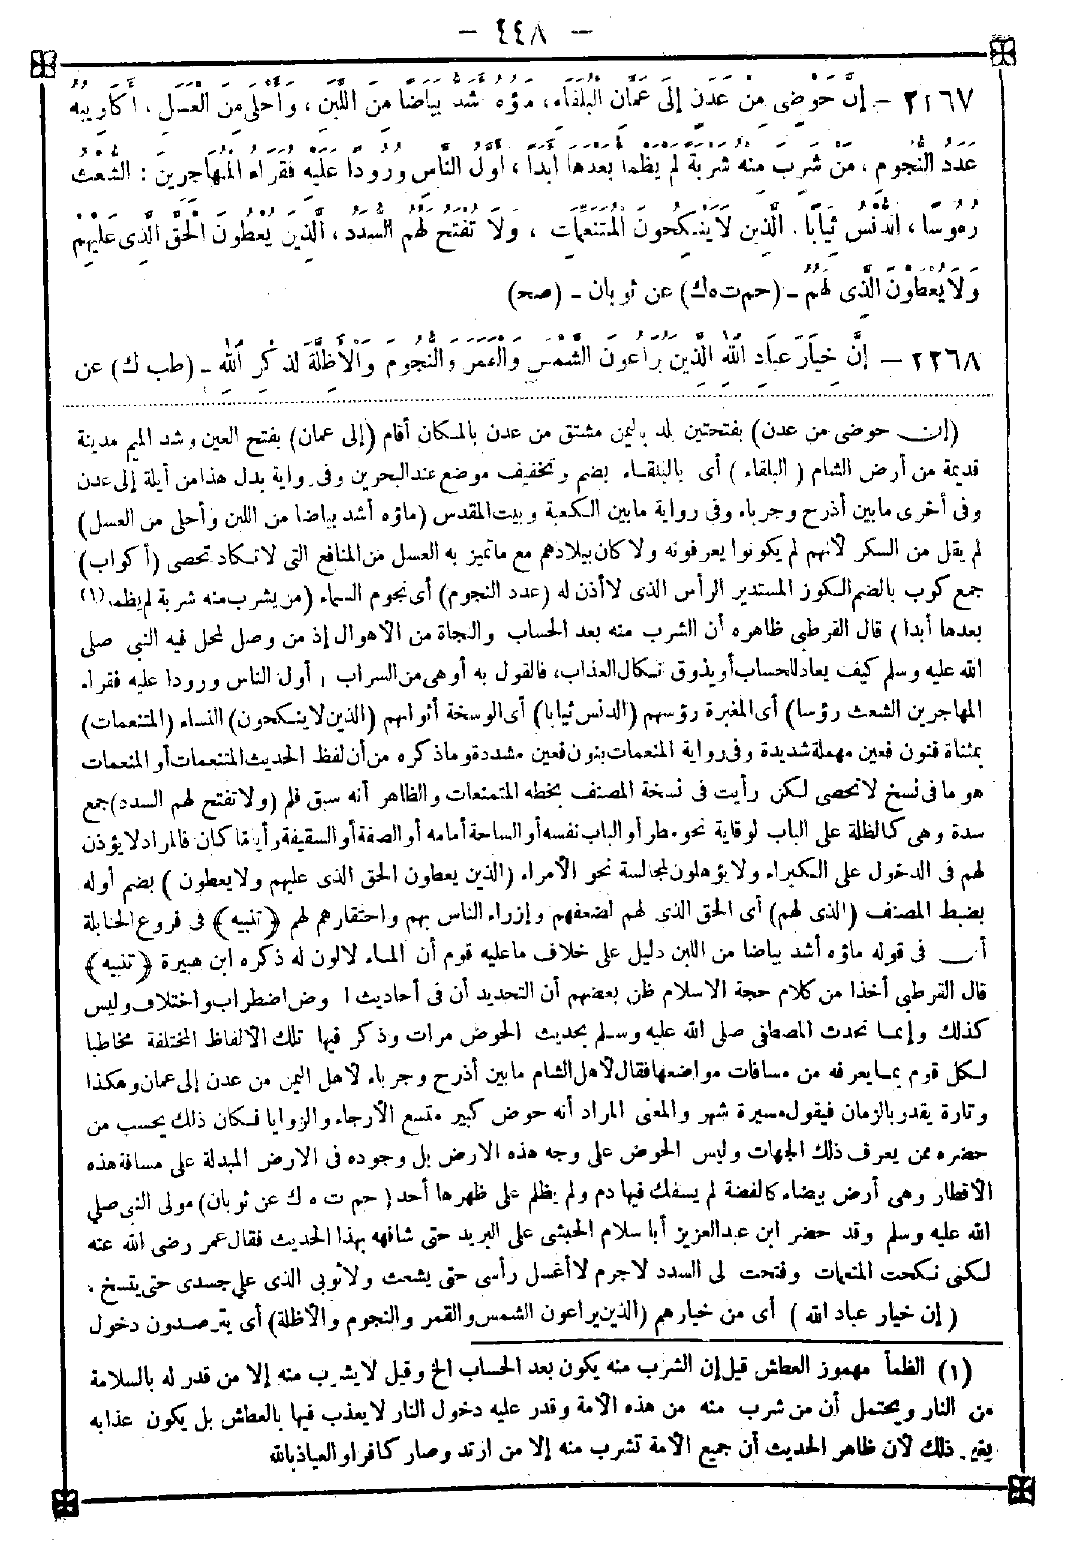 — ٤٤٨ —
٢٢٦٧ — إِنَّ حَوْضِى مِنْ عَدَنَ إِلَى عَمَّانِ الْبَلْقَاءِ، مَاؤُهُ أَشَدُّ بَيَاضًا مِنَ اللَّبَنِ، وَأَحْلَى مِنَ الْعَسَلِ، أَكَاوِيبُهُ
عَدَدُ النُّجُومِ، مَنْ شَرِبَ مِنْهُ شَرْبَةً لَمْ يَظْمَأْ بَعْدَهَا أَبَدًا، أَوَّلُ النَّاسِ وُرُودًا عَلَيْهِ فُقَرَاءُ الْمُهَاجِرِينَ: الشُّعْثُ
رُءُوسًا، الدُّنْسُ ثِيَابًا، الَّذِينَ لَا يَنْكِحُونَ الْمُتَنَعِّمَاتِ، وَلَا تُفْتَحُ لَهُمُ السُّدَدُ، الَّذِينَ يُعْطُونَ الْحَقَّ الَّذِى عَلَيْهِمْ
وَلَا يُعْطَوْنَ الَّذِى لَهُمْ — (حم ت ه ك) عن ثوبان — (صح)
٢٢٦٨ — إِنَّ خِيَارَ عِبَادِ اللهِ الَّذِينَ يُرَاعُونَ الشَّمْسَ وَالْقَمَرَ وَالنُّجُومَ وَالْأَظِلَّةَ لِذِكْرِ اللهِ — (طب ك) عن
(إن حوضى من عدن) بفتحتين بلد باليمن مشتق من عدن بالمكان أقام (إلى عمان) بفتح العين وشد الميم مدينة
قديمة من أرض الشام (البلقاء) أى بالبلقاء بضم وتخفيف موضع عند البحرين وفى رواية بدل هذا من أيلة إلى عدن
وفى أخرى ما بين أذرح وجرباء وفى رواية ما بين الكعبة وبيت المقدس (ماؤه أشد بياضا من اللبن وأحلى من العسل)
لم يقل من السكر لأنهم لم يكونوا يعرفونه ولا كان ببلادهم مع ما تميز به العسل من المنافع التى لا تكاد تحصى (أكواب)
جمع كوب بالضم الكوز المستدير الرأس الذى لا أذن له (عدد النجوم) أى نجوم السماء (من يشرب منه شربة لم يظمأ (١)
بعدها أبدا) قال القرطبى ظاهره أن الشرب منه بعد الحساب والنجاة من الأهوال إذ من وصل لمحل فيه النبى صلى
الله عليه وسلم كيف يعاد للحساب أو يذوق نكال العذاب، فالقول به أوهى من السراب، أول الناس ورودا عليه فقراء
المهاجرين الشعث رؤسا) أى المغبرة رؤسهم (الدنس ثيابا) أى الوسخة أثوابهم (الذين لا ينكحون) النساء (المتنعمات)
بمثناة فنون فعين مهملة شديدة وفى رواية المنعمات بنون فعين مشددة وما ذكره من أن لفظ الحديث المتنعمات أو المنعمات
هو ما فى نسخ لا تحصى لكن رأيت فى نسخة المصنف بخطه المتمنعات والظاهر أنه سبق قلم (ولا تفتح لهم السدد) جمع
سدة وهى كالظلة على الباب لوقاية نحو مطر أو الباب نفسه أو الساحة أمامه أو الصفة أو السقيفة وأيا ما كان فالمراد لا يؤذن
لهم فى الدخول على الكبراء ولا يؤهلون لمجالسة نحو الأمراء (الذين يعطون الحق الذى عليهم ولا يعطون) بضم أوله
بضبط المصنف (الذى لهم) أى الحق الذى لهم لضعفهم وإزراء الناس بهم واحتقارهم لهم (تنبيه) فى فروع الحنابلة
أن فى قوله ماؤه أشد بياضا من اللبن دليل على خلاف ما عليه قوم أن الماء لا لون له ذكره ابن هبيرة (تنبيه)
قال القرطبى أخذا من كلام حجة الاسلام ظن بعضهم أن التحديد أن فى أحاديث ا وض اضطراب واختلاف وليس
كذلك وإنما تحدث المصطفى صلى الله عليه وسلم بحديث الحوض مرات وذكر فيها تلك الألفاظ المختلفة مخاطبا
لكل قوم بما يعرفه من مسافات مواضعها فقال لأهل الشام ما بين أذرح وجرباء لأهل اليمن من عدن إلى عمان وهكذا
وتارة يقدر بالزمان فيقول مسيرة شهر والمعنى المراد أنه حوض كبير متسع الأرجاء والزوايا فكان ذلك بحسب من
حضره ممن يعرف ذلك الجهات وليس الحوض على وجه هذه الارض بل وجوده فى الارض المبدلة على مسافة هذه
الأقطار وهى أرض بيضاء كالفضة لم يسفك فيها دم ولم يظلم على ظهرها أحد (حم ت ه ك عن ثوبان) مولى النبى صلى
الله عليه وسلم وقد حضر ابن عبد العزيز أبا سلام الحبشى على البريد حتى شافهه بهذا الحديث فقال عمر رضى الله عنه
لكنى نكحت المنعمات وفتحت لى السدد لا جرم لا أغسل رأسى حتى يشعث ولا ثوبى الذى على جسدى حتى يتسخ.
(إن خيار عباد الله) أى من خيارهم (الذين يراعون الشمس والقمر والنجوم والأظلة) أى يترصدون دخول
(١) الظمأ مهموز العطاش قيل إن الشرب منه يكون بعد الحساب الخ وقيل لا يشرب منه إلا من قدر له بالسلامة
من النار ويحتمل أن من شرب منه من هذه الأمة وقدر عليه دخول النار لا يعذب فيها بالعطاش بل يكون عذابه
بغير ذلك لأن ظاهر الحديث أن جميع الأمة تشرب منه إلا من ارتد وصار كافرا والعياذ بالله